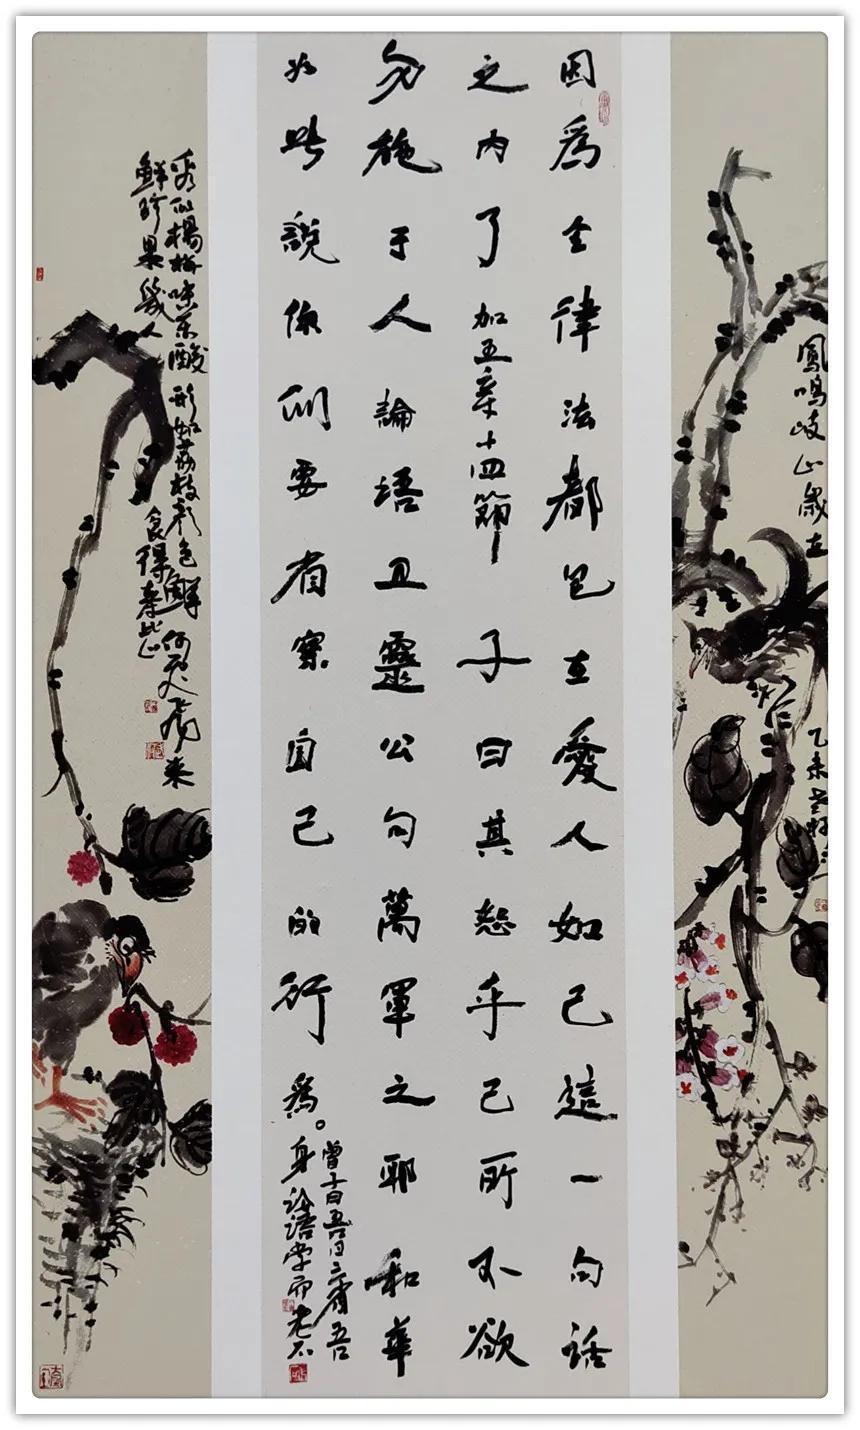 鳳鳴岐山歲在
乙未
因為全律法都包在愛人如己這一句話
之內了加五章十四節子曰其恕乎己所不欲
勿施于人論語卫靈公句萬軍之耶和華
如此說你們要省察自己的行為。
曾子曰吾日三省吾
身論語學而老石
似楊梅味不酸形如荔枝彩色鮮何
鮮珍果幾人食得